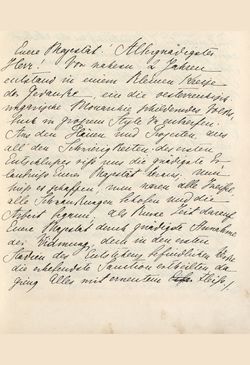 Eure Majestät! Allergnädigster
Herr! Vor nahezu 2 Jahren
entstand in einem kleinen Kreise
der Gedanke, ein die oesterreichisch-
ungarische Monarchie schilderndes Volks-
buch in großem Style zu entwerfen.
Aus den Plänen und Projecten, aus
all den Schwierigkeiten des ersten
Entschlusses riß uns die gnädigste Er-
laubniß Eurer Majestät heraus; nun
hieß es schaffen; nun waren alle Zweifel
alle Schwankungen behoben und die
Arbeit begann; als kurze Zeit darauf
Eure Majestät durch gnädigste Annahme
der Widmung, dem in den ersten
Stadien der Entstehung befindlichen Werke
die erhebendste Sanction ertheilten, da
ging Alles mit erneutem Fleiße,